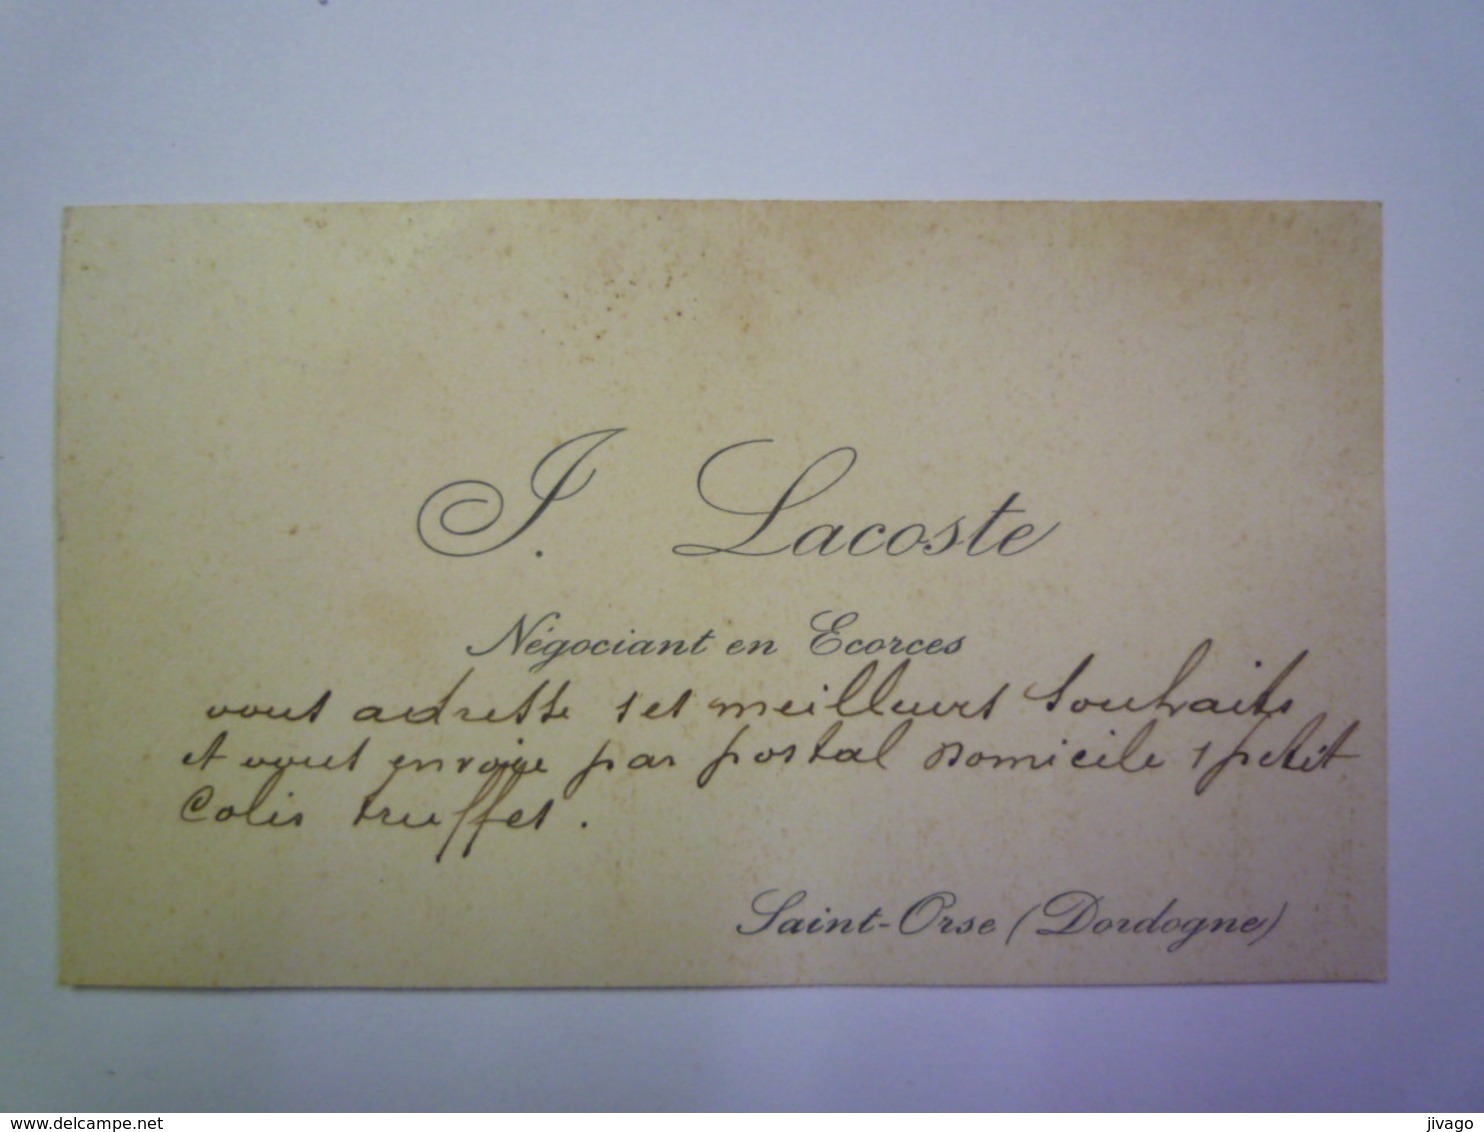 J. Lacoste
Négociant en Ecorces
vous adresse ses meilleurs souhaits
et vous envoie par postal domicile 1 petit
Colis truffes.
Saint-Orse (Dordogne)
www.delcampe.net
jivago